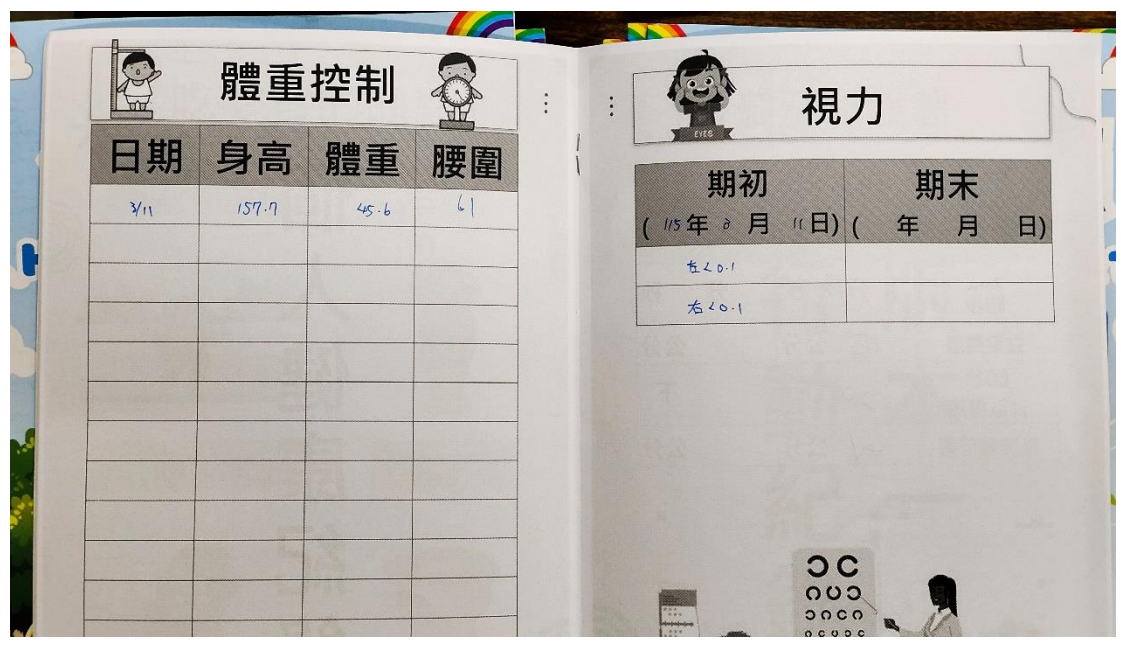 體重控制
日期 身高 體重 腰圍
3/11 157.7 45.6 61
視力
EYES
期初 期末
( 115年 3 月 11日) ( 年 月 日)
左<0.1
右<0.1